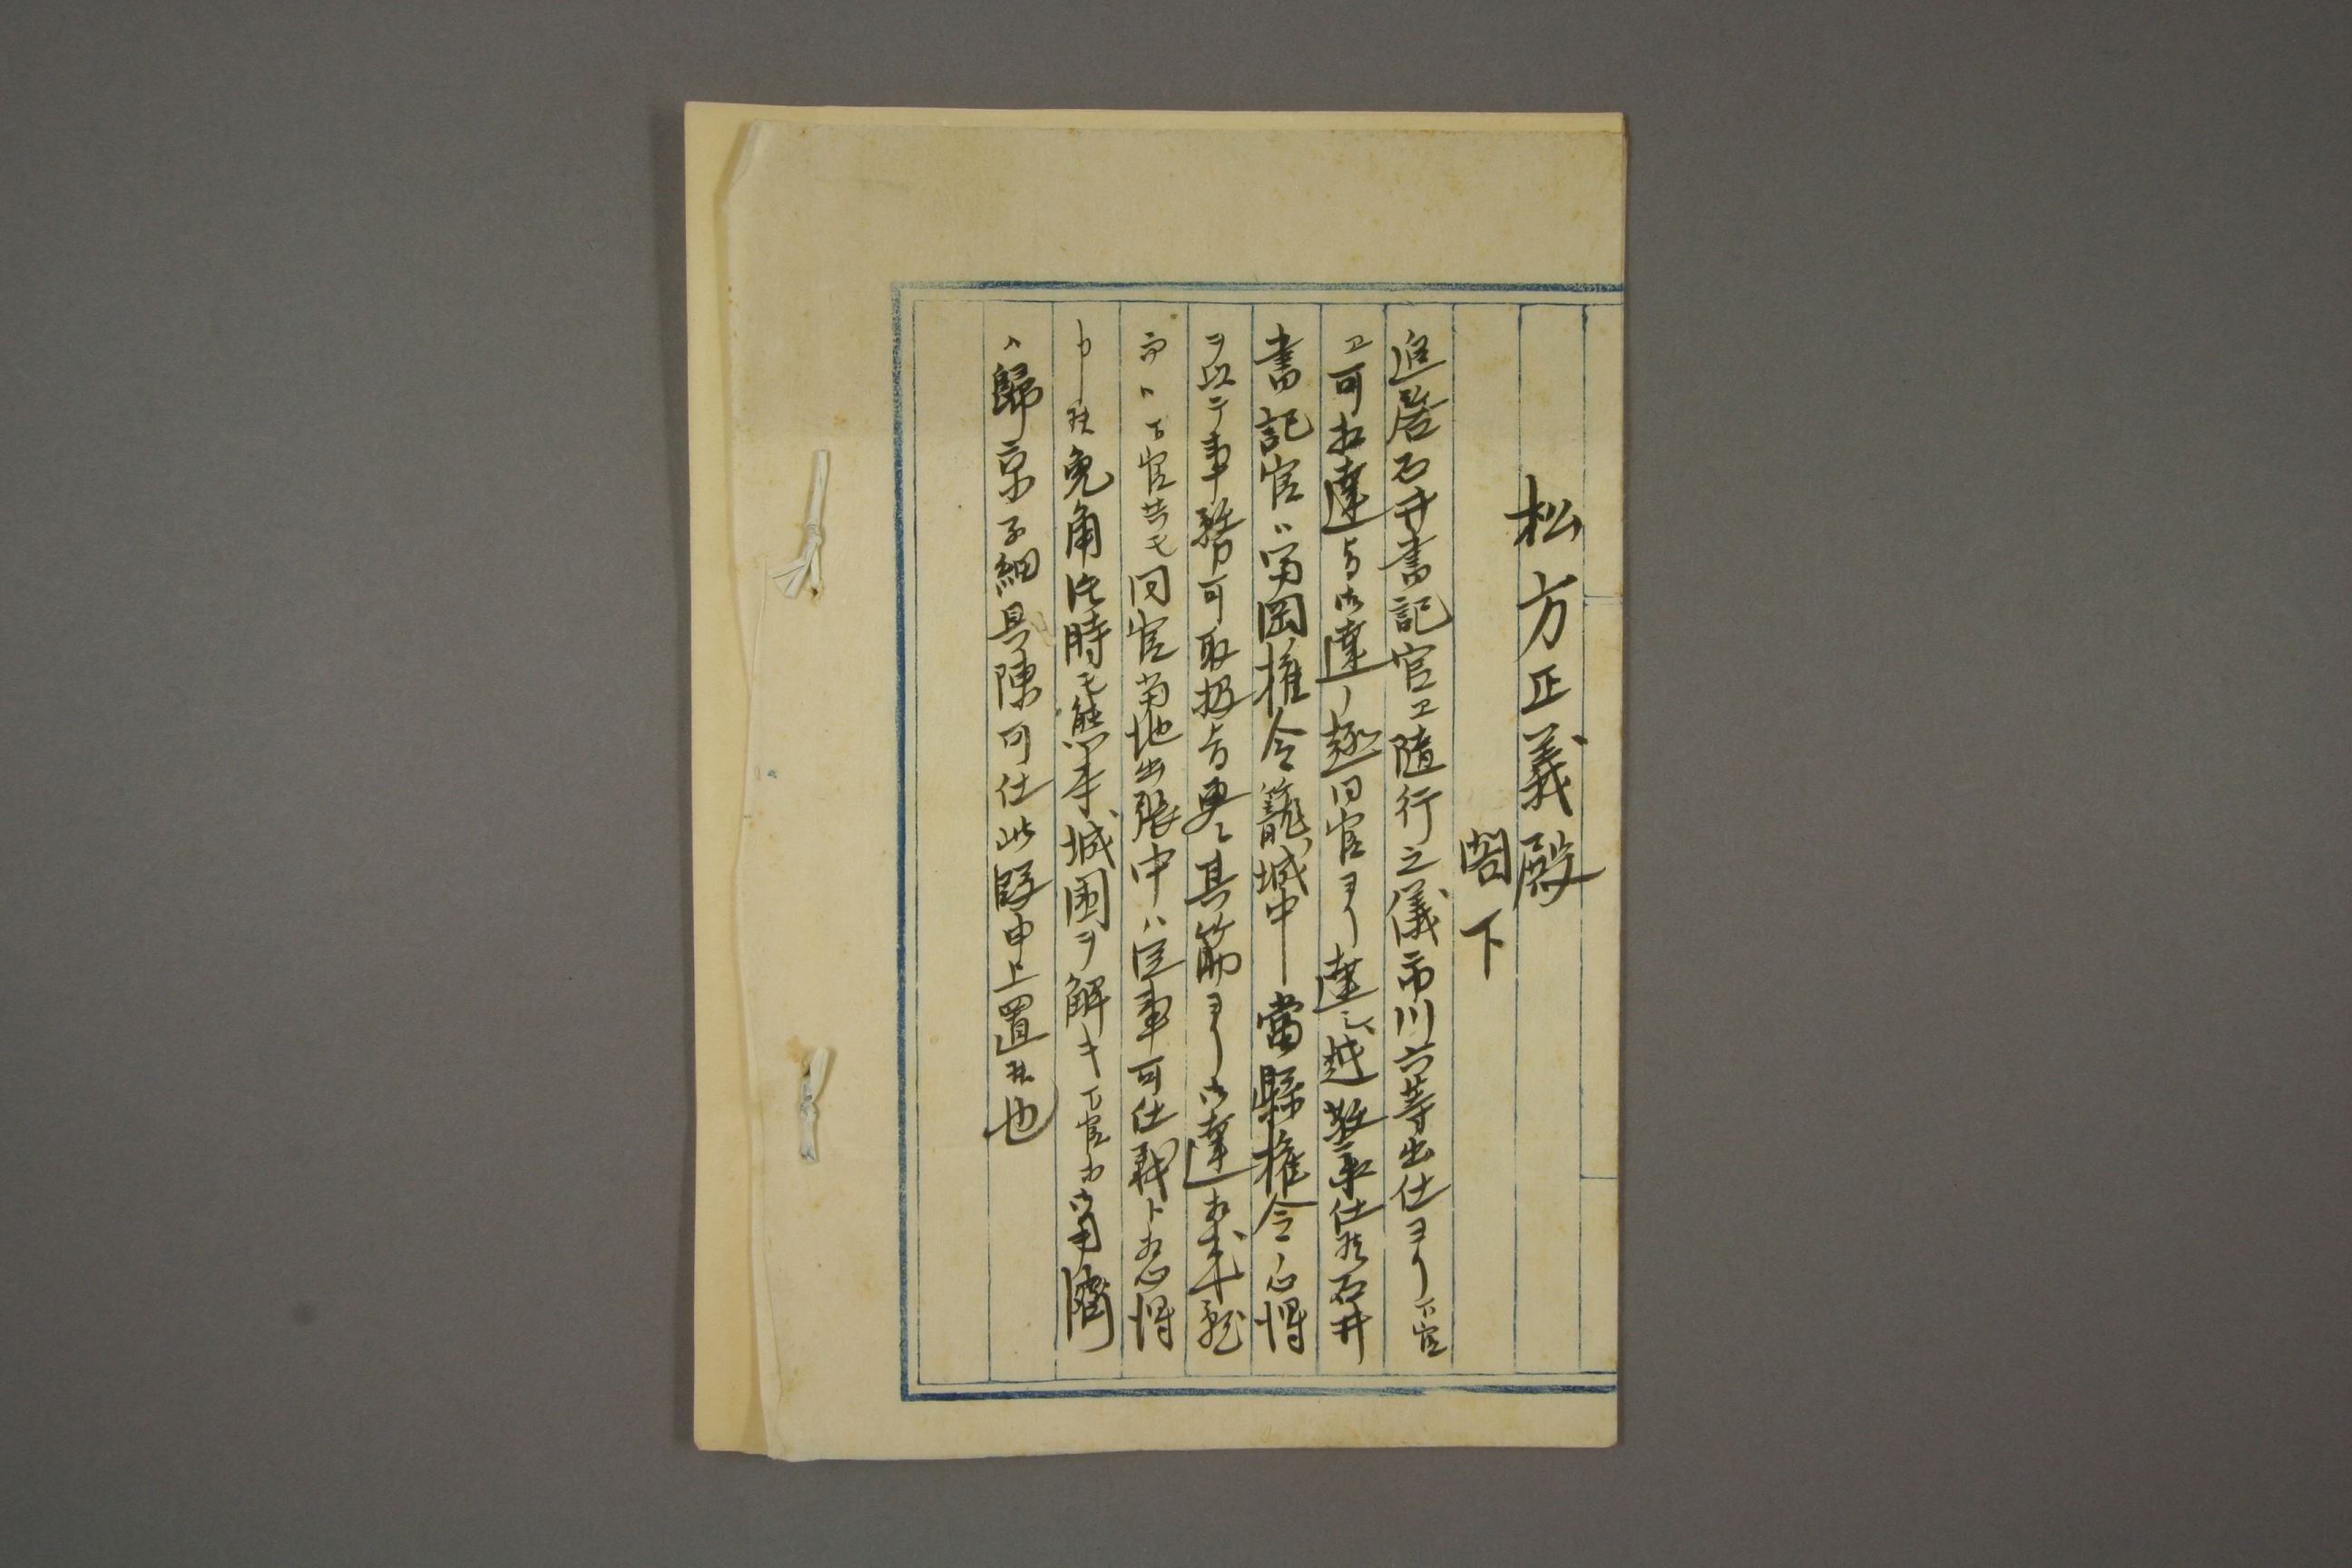 松方正義殿
閣下
追啓石井書記官ヱ随行之儀市川六等出仕ヨリ下官
ヱ可相達旨御達ノ趣同官ヨリ達シ越敬承仕候石井
書記官ハ富岡権令籠城中ー當縣権令ノ心得
ヲ以テ事務可取扱旨更ニ其筋ヨリ御達相成就
而ハ下官共モ同官当地出張中ハ従事可仕哉ト相心得
申候兎角片時モ熊本城囲ヲ解キ下官カ御用済
ハ歸京子細具陳可仕此段申上置候也